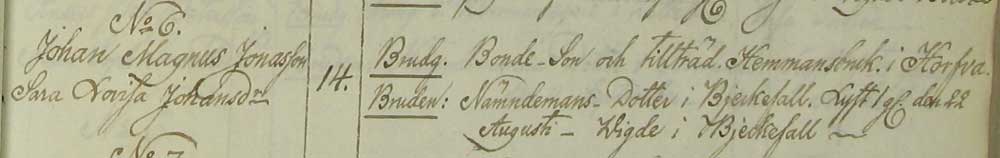 No 6.
Johan Magnus Jonasson
Sara Lovisa Johansdr
14.
Brudg. Bonde-Son och tillträd. Hemmansbruk. i Horfva.
Bruden: Nämndemans-Dotter i Bjerkefall. Lyst 1 gf. den 22
Augusti - Wigde i Bjerkefall
No 7.